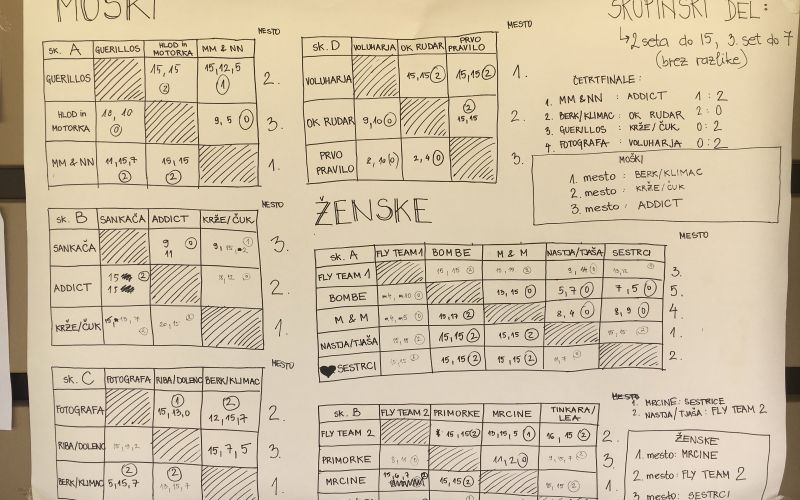 MOŠKI
SKUPINSKI DEL:
↳ 2 seta do 15, 3. set do 7
(brez razlike)
MESTO
SK. A GUERILLOS HLOD in MOTORKA MM & NN
GUERILLOS 15, 15 (2) 15,12,5 (1) 2.
HLOD in MOTORKA 10, 10 (0) 9, 5 (0) 3.
MM & NN 11,15,7 (2) 15, 15 (2) 1.
MESTO
sk. D VOLUHARJA OK RUDAR PRVO PRAVILO
VOLUHARJA 15,15 (2) 15,15 (2) 1.
OK RUDAR 9,10 (0) (2) 15,15 2.
PRVO PRAVILO 8, 10 (0) 2,4 (0) 3.
ČETRTFINALE:
1. MM & NN : ADDICT 1 : 2
2. BERK/KLIMAC : OK RUDAR 2 : 0
3. GUERILLOS : KRŽE/ČUK 0 : 2
4. FOTOGRAFA : VOLUHARJA 0 : 2
MOŠKI
1. mesto : BERK/KLIMAC
2. mesto : KRŽE/ČUK
3. mesto : ADDICT
MESTO
sk. B SANKAČA ADDICT KRŽE/ČUK
SANKAČA 9 11 (0) 3.
ADDICT 15 15 (2) 2.
KRŽE/ČUK 1.
ŽENSKE
MESTO
sk. A FLY TEAM 1 BOMBE M & M NASTJA/TJAŠA SESTRCI
FLY TEAM 1 3.
BOMBE 13, 15 (0) 5,7 (0) 7, 5 (0) 5.
M & M 15,17 (2) 8, 4 (0) 8, 9 (0) 4.
NASTJA/TJAŠA 15,15 (2) 15,15 (2) 1.
SESTRCI 15,15 (2) 15,15 (2) 2.
MESTO
sk. C FOTOGRAFA RIBA/DOLENC BERK/KLIMAC
FOTOGRAFA (1) 15, 13, 0 (2) 12, 15, 7 2.
RIBA/DOLENC 15, 7, 5 3.
BERK/KLIMAC (2) 5,15,7 (2) 1.
sk. B FLY TEAM 2 PRIMORKE MRCINE TINKARA/LEA
FLY TEAM 2 15, 15 (2) (1) 15 (2) 2.
PRIMORKE 11, 2 (0) 3.
MRCINE 15,15 (2) 1.
MESTO
1. MRCINE : SESTRICE
2. NASTJA/TJAŠA : FLY TEAM 2
ŽENSKE
1. mesto: MRCINE
2. mesto: FLY TEAM 2
3. mesto: SESTRCI